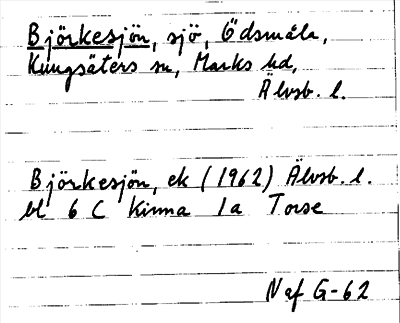 Björkesjön, sjö, Ödsmåla,
Kungsäters sn, Marks hd,
Älvsb. l.
Björkesjön, ek (1962) Älvsb. l.
bl 6 C Kinna 1a Torse
Naf G-62